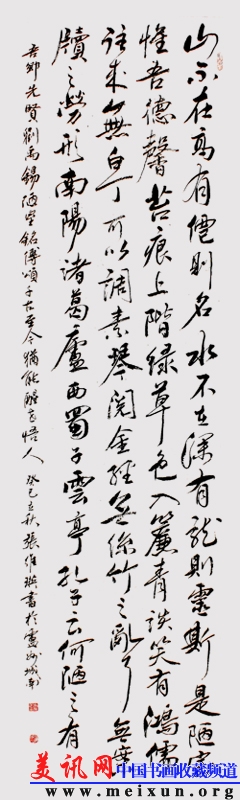 山不在高有僊則名水不在深有龍則靈斯是陋室
惟吾德馨苔痕上階緑草色入簾青談笑有鴻儒
往來無白丁可以調素琴閱金經無絲竹之亂耳無案
牘之勞形南陽諸葛廬西蜀子雲亭孔子云何陋之有
吾鄉先賢劉禹錫陋室銘傳頌千古至今猶能醒悟人 癸巳立秋張維書於城南
美讯网 中国书画收藏频道
www.meixun.org